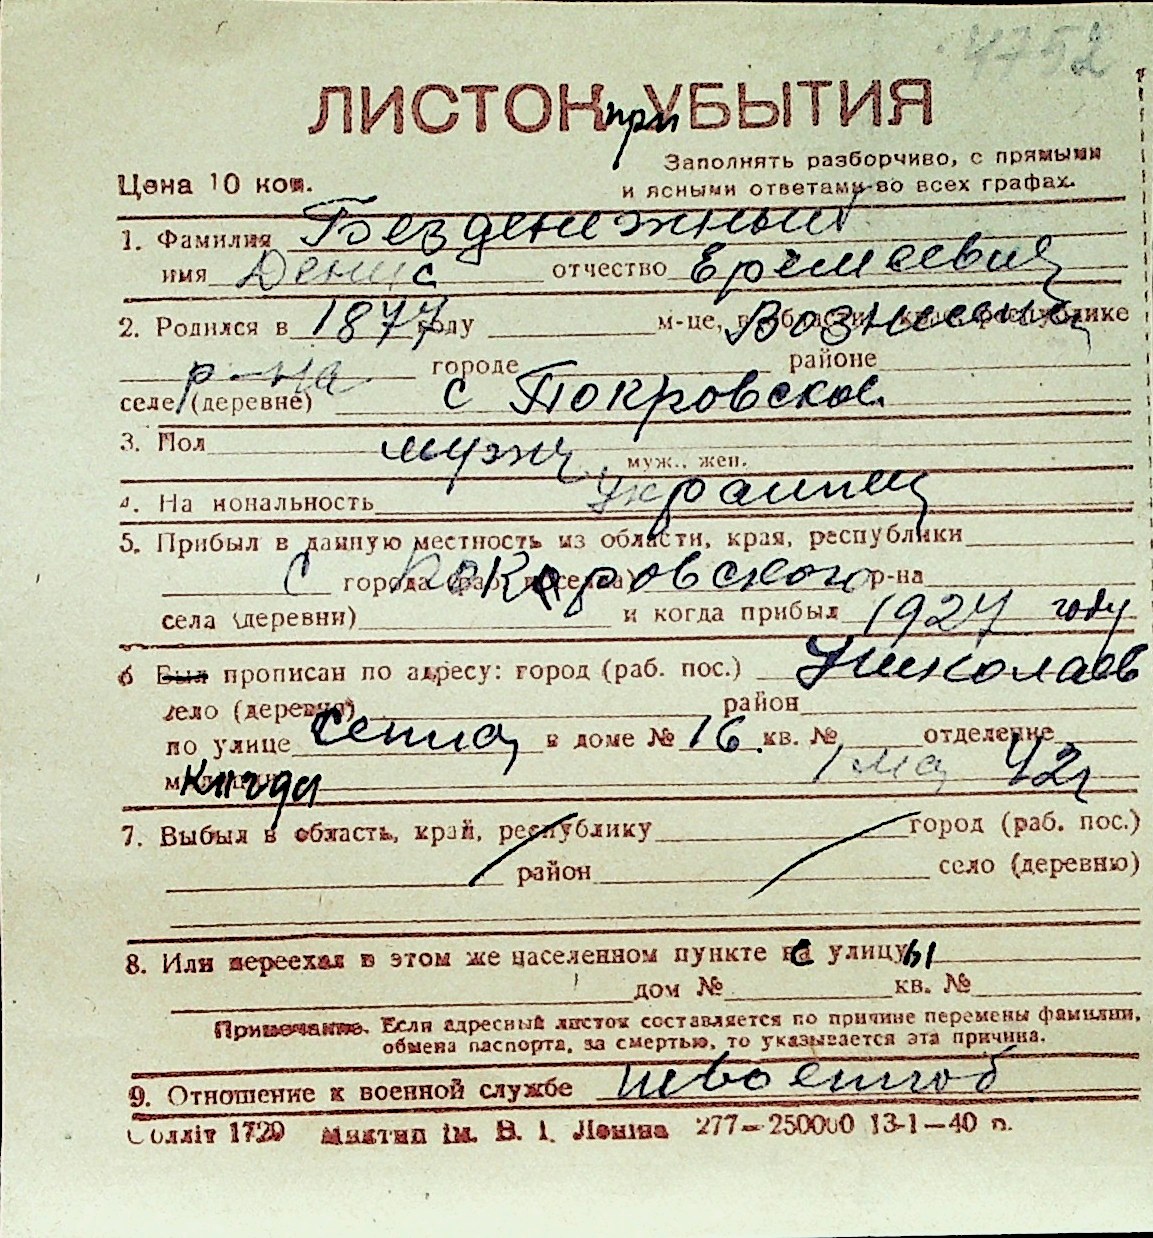 4752
ЛИСТОК при УБЫТИЯ
Заполнять разборчиво, с прямыми
Цена 10 коп. и ясными ответами во всех графах.
1. Фамилия Безденежный
имя Денис отчество Еремеевич
2. Родился в 1877 году м-це, в области, крае, республике Вознесенск
р-на городе районе
селе (деревне) с Покровское
3. Пол мужч муж., жен.
4. Национальность украинец
5. Прибыл в данную местность из области, края, республики
с Покровского города (раб. поселка) р-на
села (деревни) и когда прибыл 1927 году
6 Был прописан по адресу: город (раб. пос.) Николаев
село (деревня) район
по улице Сенная в доме № 16 кв. № отделение
милиции Когда 1 мая 42г
7. Выбыл в область, край, республику город (раб. пос.)
район село (деревню)
8. Или переехал в этом же населенном пункте с улицы
дом № кв. №
Примечание. Если адресный листок составляется по причине перемены фамилии,
обмена паспорта, за смертью, то указывается эта причина.
9. Отношение к военной службе
Обллiт 1729 Миктип iм. В. I. Ленiна 277—250000 13-1—40 п.